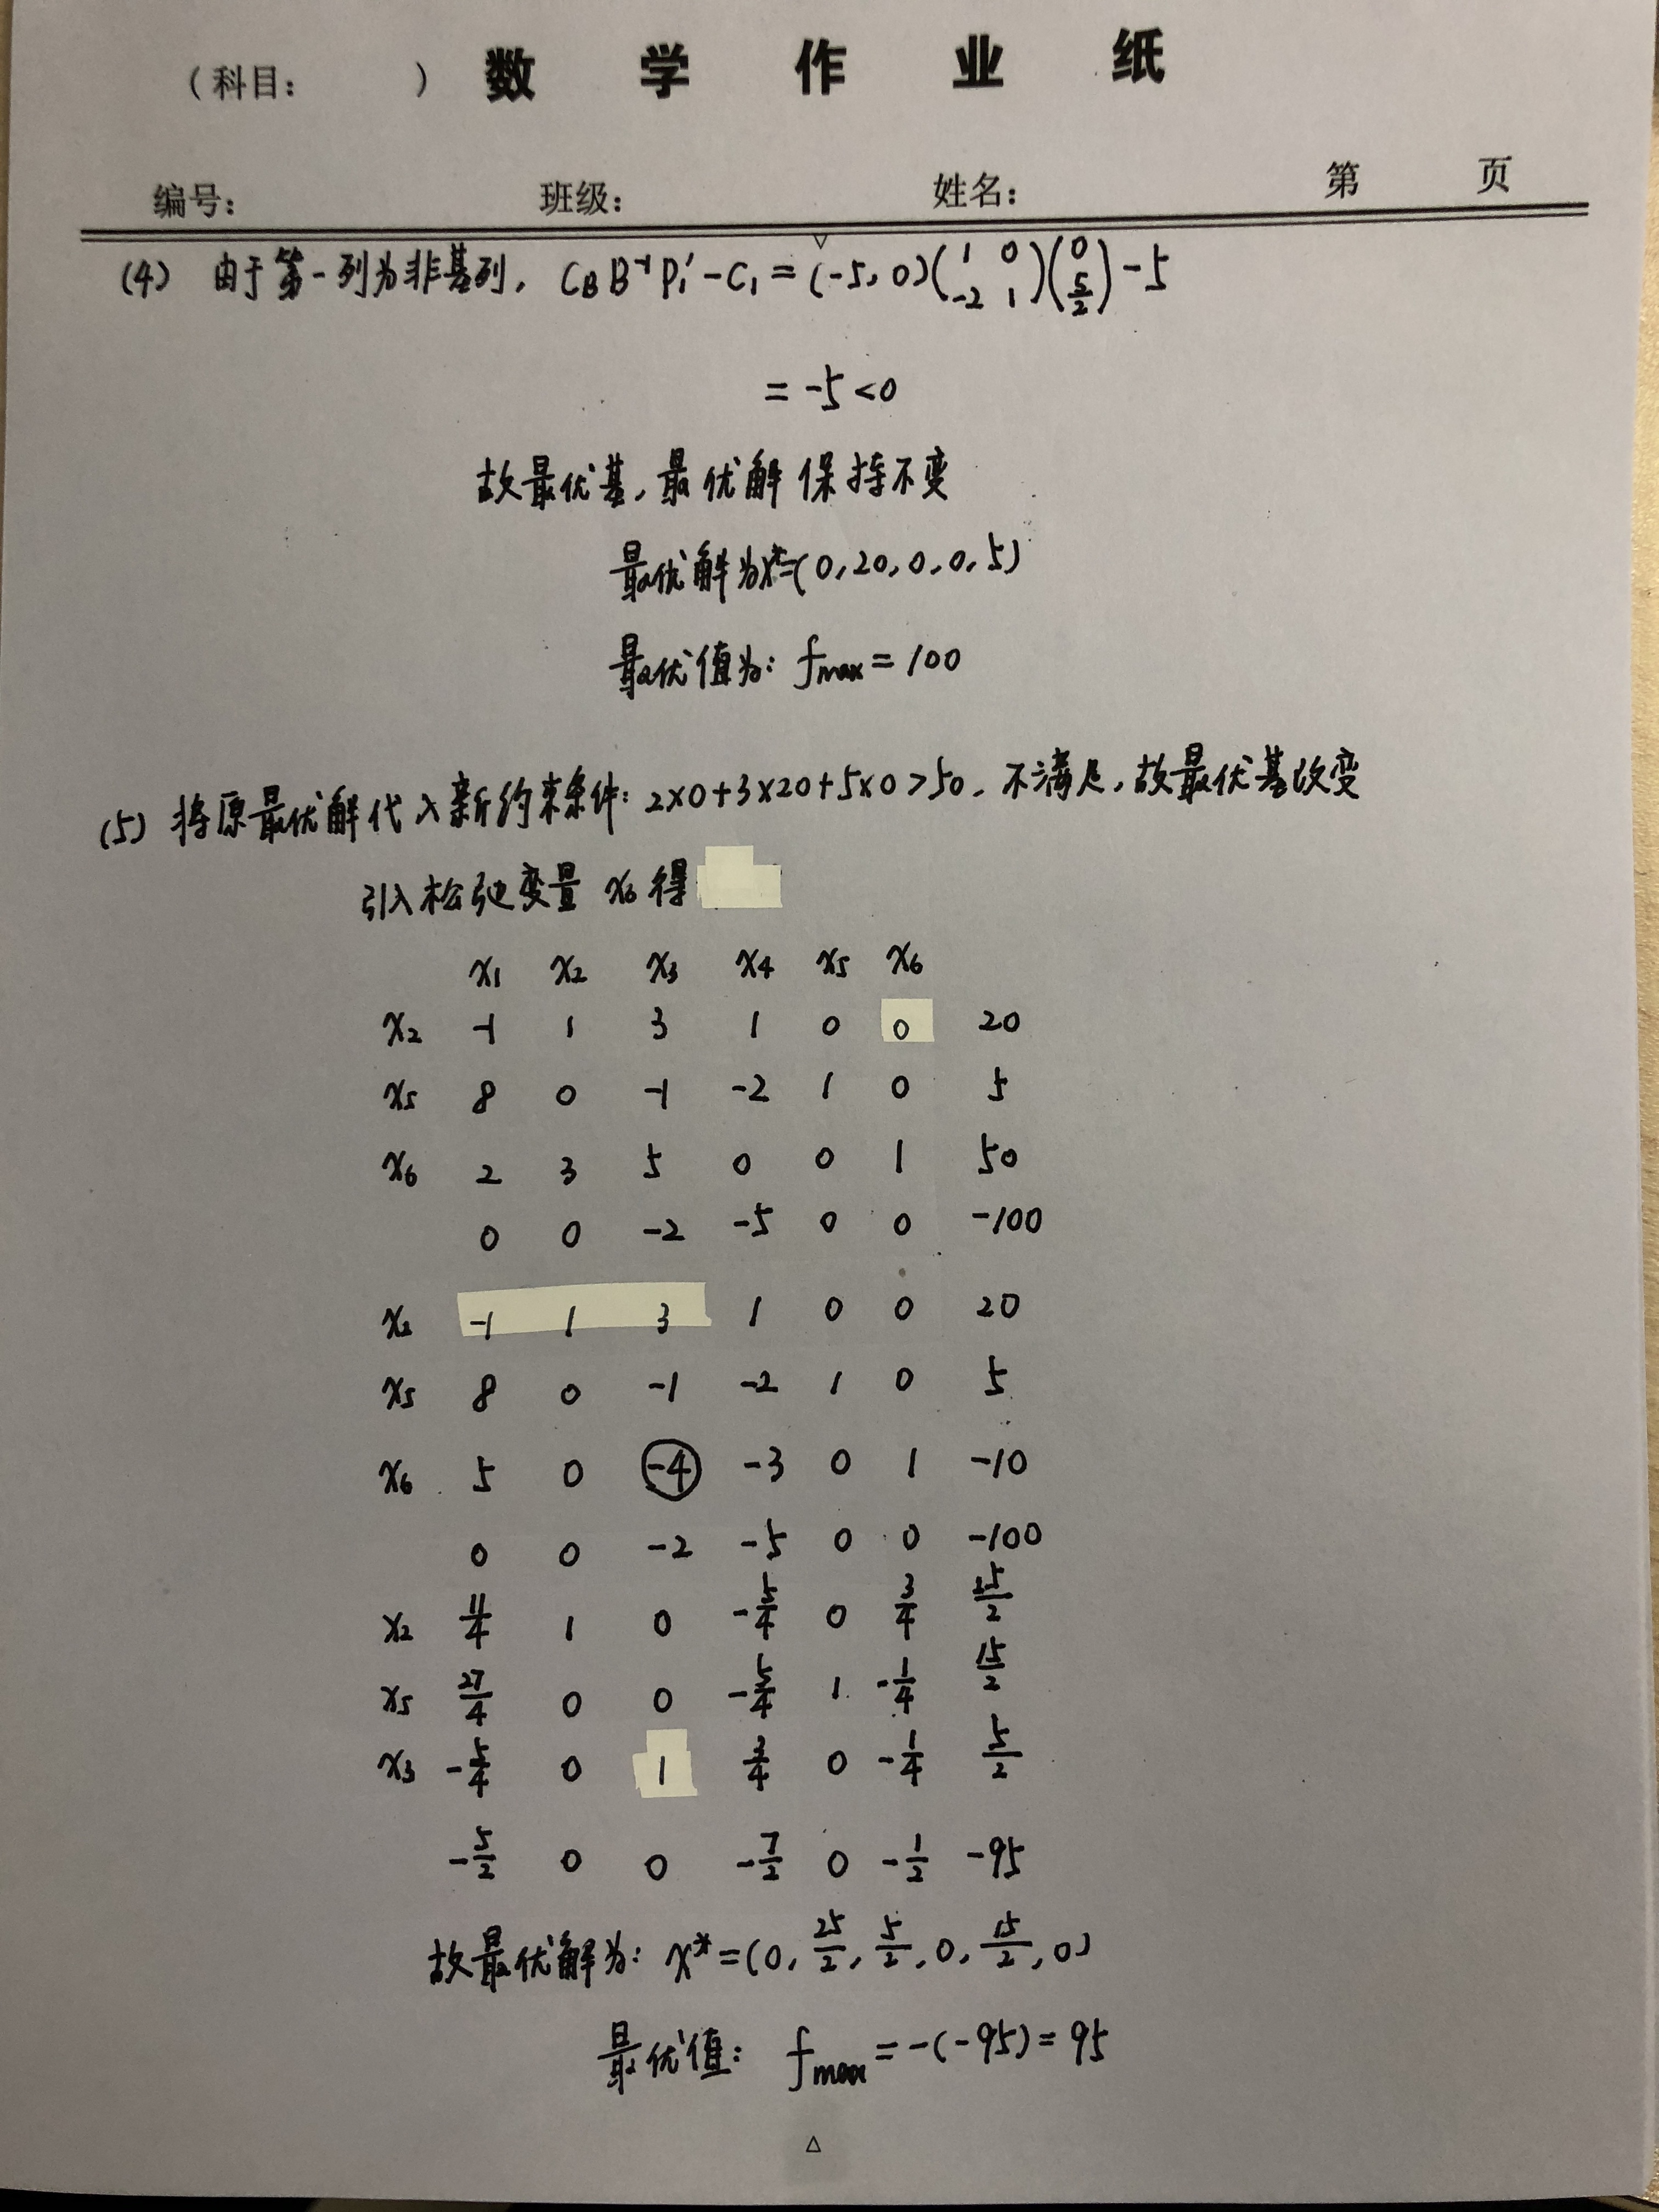 （科目：　　　）数 学 作 业 纸
编号：　　　班级：　　　姓名：　　　第　　页
(4) 由于第一列为非基列, C_B B⁻¹ P₁′ - C₁ = (-5, 0)(1 0; -2 1)(0; 5/2) - 5
= -5 < 0
故最优基, 最优解保持不变
最优解为x*=(0, 20, 0, 0, 5)
最优值为: f_max = 100
(5) 将原最优解代入新约束条件: 2×0+3×20+5×0>50, 不满足, 故最优基改变
引入松弛变量 x₆ 得
x₁ x₂ x₃ x₄ x₅ x₆
x₂ -1 1 3 1 0 0 20
x₅ 8 0 -1 -2 1 0 5
x₆ 2 3 5 0 0 1 50
0 0 -2 -5 0 0 -100
x₂ -1 1 3 1 0 0 20
x₅ 8 0 -1 -2 1 0 5
x₆ 5 0 -4 -3 0 1 -10
0 0 -2 -5 0 0 -100
x₂ 11/4 1 0 -5/4 0 3/4 25/2
x₅ 27/4 0 0 -5/4 1 -1/4 15/2
x₃ -5/4 0 1 3/4 0 -1/4 5/2
-5/2 0 0 -7/2 0 -1/2 -95
故最优解为: x* = (0, 25/2, 5/2, 0, 15/2, 0)
最优值: f_max = -(-95) = 95